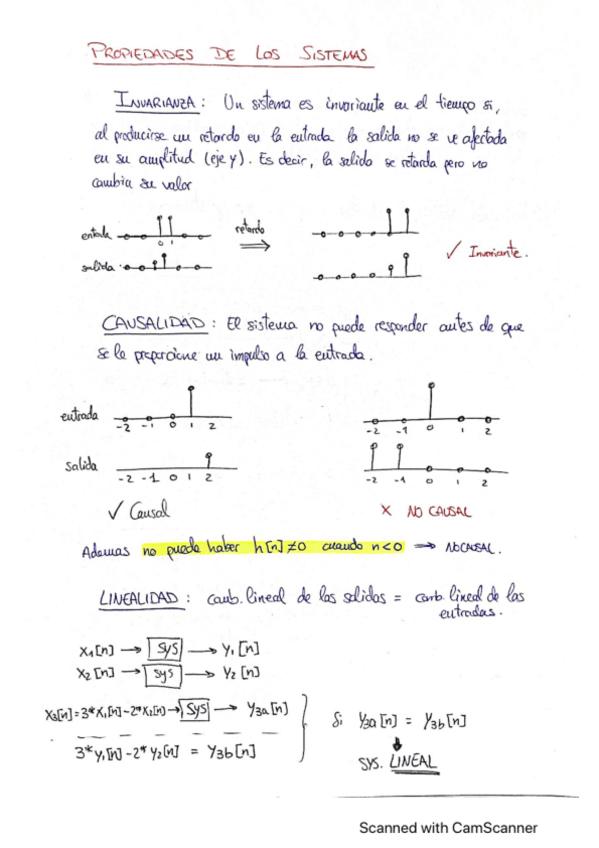 PROPIEDADES DE LOS SISTEMAS
INVARIANZA: Un sistema es invariante en el tiempo si,
al producirse un retardo en la entrada la salida no se ve afectada
en su amplitud (eje y). Es decir, la salida se retarda pero no
cambia su valor
entrada
0 1
retardo
⟹
salida
✓ Invariante.
CAUSALIDAD: El sistema no puede responder antes de que
se le proporcione un impulso a la entrada.
entrada
-2 -1 0 1 2
-2 -1 0 1 2
salida
-2 -1 0 1 2
-2 -1 0 1 2
✓ Causal
X NO CAUSAL
Ademas no puede haber h[n]≠0 cuando n<0 ⟹ NO CAUSAL.
LINEALIDAD: comb. lineal de las salidas = comb. lineal de las
entradas.
x1[n] → sys → y1[n]
x2[n] → sys → y2[n]
x3[n]=3*x1[n]-2*x2[n] → sys → y3a[n]
3*y1[n]-2*y2[n] = y3b[n]
Si y3a[n] = y3b[n]
SYS. LINEAL
Scanned with CamScanner